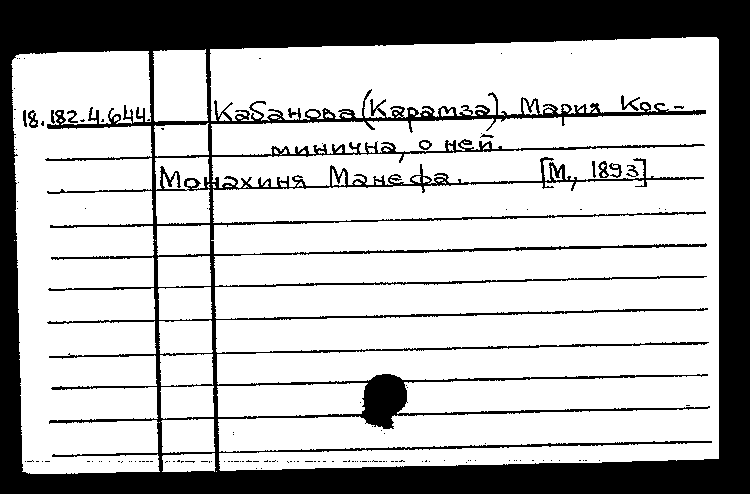 18.182.4.644. Кабанова (Карамза), Мария Кос-
минична, о ней.
Монахиня Манефа. [М., 1893].